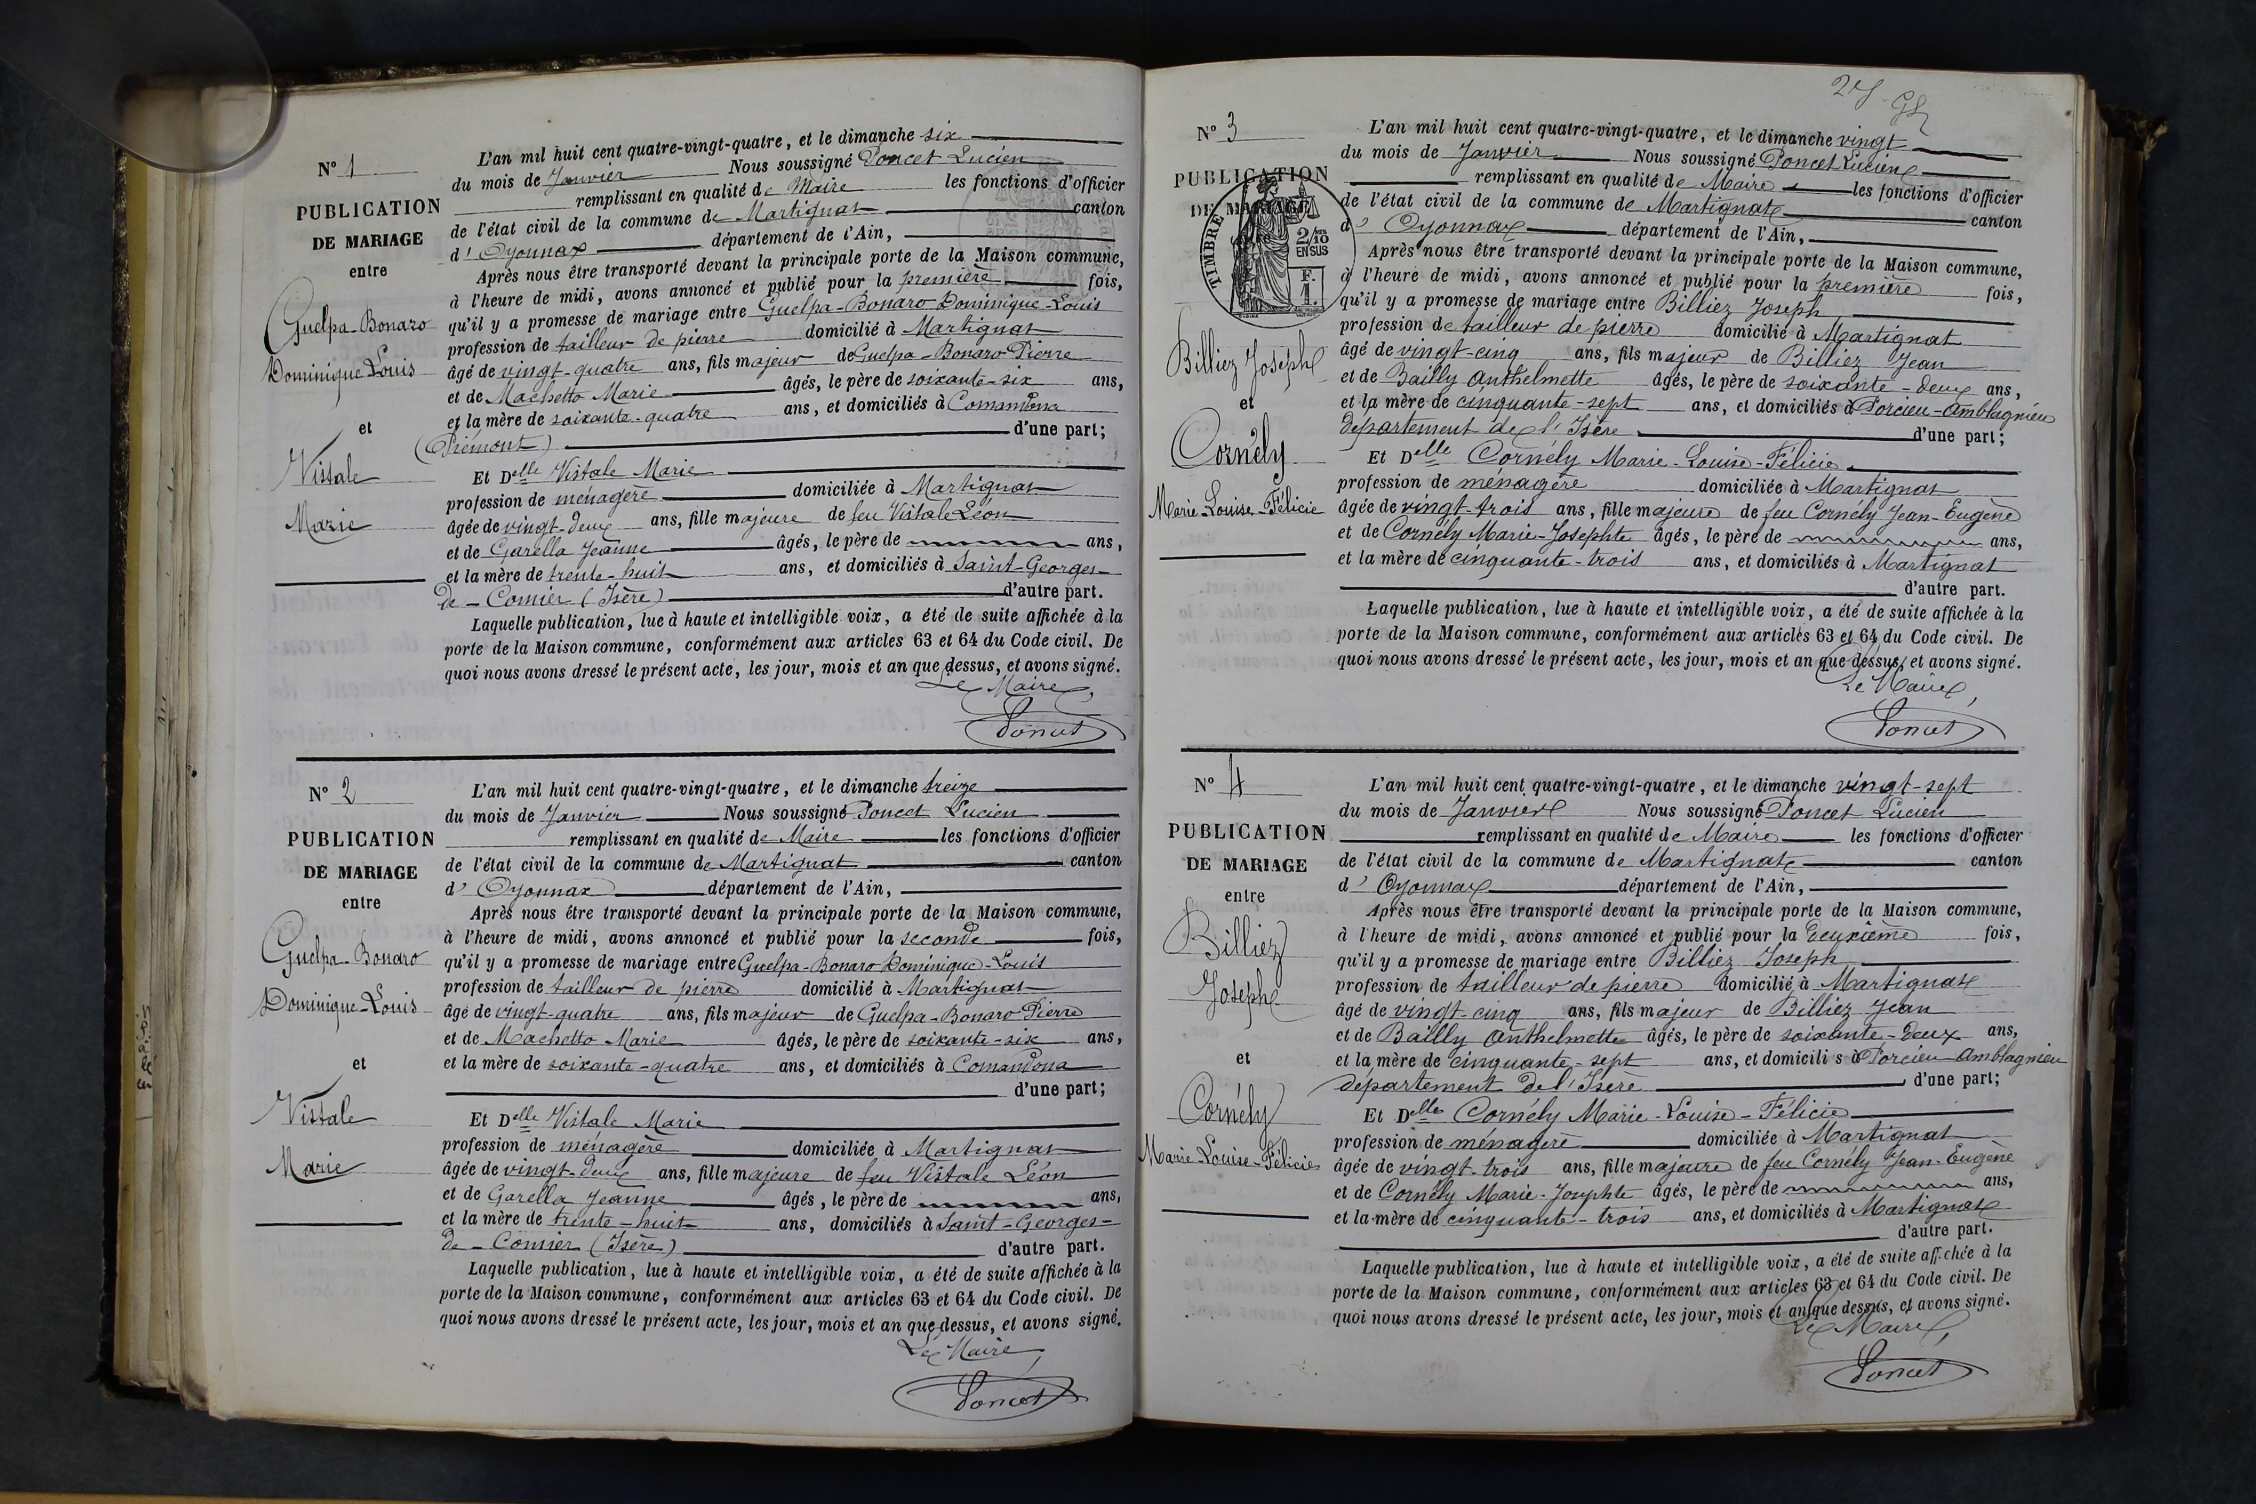 N° 1
PUBLICATION
DE MARIAGE
entre
Guelpa-Bonaro
Dominique Louis
et
Vistale
Marie
L'an mil huit cent quatre-vingt-quatre, et le dimanche six
du mois de Janvier Nous soussigné Poncet Lucien
remplissant en qualité de Maire les fonctions d'officier
de l'état civil de la commune de Martignat canton
d' Oyonnax département de l'Ain,
Après nous être transporté devant la principale porte de la Maison commune,
à l'heure de midi, avons annoncé et publié pour la première fois,
qu'il y a promesse de mariage entre Guelpa-Bonaro Dominique-Louis
profession de tailleur de pierre domicilié à Martignat
âgé de vingt-quatre ans, fils majeur de Guelpa-Bonaro Pierre
et de Machetto Marie âgés, le père de soixante-six ans,
et la mère de soixante-quatre ans, et domiciliés à Comandona
(Piémont) d'une part;
Et Delle Vistale Marie
profession de ménagère domiciliée à Martignat
âgée de vingt-deux ans, fille majeure de feu Vistale Léon
et de Garella Jeanne âgés, le père de ans,
et la mère de trente-huit ans, et domiciliés à Saint-Georges-
de-Comier (Isère) d'autre part.
Laquelle publication, lue à haute et intelligible voix, a été de suite affichée à la
porte de la Maison commune, conformément aux articles 63 et 64 du Code civil. De
quoi nous avons dressé le présent acte, les jour, mois et an que dessus, et avons signé.
Le Maire,
Poncet
N° 2
PUBLICATION
DE MARIAGE
entre
Guelpa-Bonaro
Dominique-Louis
et
Vistale
Marie
L'an mil huit cent quatre-vingt-quatre, et le dimanche treize
du mois de Janvier Nous soussigné Poncet Lucien
remplissant en qualité de Maire les fonctions d'officier
de l'état civil de la commune de Martignat canton
d' Oyonnax département de l'Ain,
Après nous être transporté devant la principale porte de la Maison commune,
à l'heure de midi, avons annoncé et publié pour la seconde fois,
qu'il y a promesse de mariage entre Guelpa-Bonaro Dominique-Louis
profession de tailleur de pierre domicilié à Martignat
âgé de vingt-quatre ans, fils majeur de Guelpa-Bonaro Pierre
et de Machetto Marie âgés, le père de soixante-six ans,
et la mère de soixante-quatre ans, et domiciliés à Comandona
d'une part;
Et Delle Vistale Marie
profession de ménagère domiciliée à Martignat
âgée de vingt-deux ans, fille majeure de feu Vistale Léon
et de Garella Jeanne âgés, le père de ans,
et la mère de trente-huit ans, domiciliés à Saint-Georges-
de-Comier (Isère) d'autre part.
Laquelle publication, lue à haute et intelligible voix, a été de suite affichée à la
porte de la Maison commune, conformément aux articles 63 et 64 du Code civil. De
quoi nous avons dressé le présent acte, les jour, mois et an que dessus, et avons signé.
Le Maire,
Poncet
N° 3
PUBLICATION
DE MARIAGE
TIMBRE
2/10
EN SUS
F.
1.
Billiez Joseph
et
Cornély
Marie-Louise-Félicie
L'an mil huit cent quatre-vingt-quatre, et le dimanche vingt
du mois de Janvier Nous soussigné Poncet Lucien
remplissant en qualité de Maire les fonctions d'officier
de l'état civil de la commune de Martignat canton
d' Oyonnax département de l'Ain,
Après nous être transporté devant la principale porte de la Maison commune,
à l'heure de midi, avons annoncé et publié pour la première fois,
qu'il y a promesse de mariage entre Billiez Joseph
profession de tailleur de pierre domicilié à Martignat
âgé de vingt-cinq ans, fils majeur de Billiez Jean
et de Bailly Anthelmette âgés, le père de soixante-deux ans,
et la mère de cinquante-sept ans, et domiciliés à Porcieu-Amblagnieu
département de l'Isère d'une part;
Et Delle Cornély Marie-Louise-Félicie
profession de ménagère domiciliée à Martignat
âgée de vingt-trois ans, fille majeure de feu Cornély Jean-Eugène
et de Cornély Marie-Josephte âgés, le père de ans,
et la mère de cinquante-trois ans, et domiciliés à Martignat
d'autre part.
Laquelle publication, lue à haute et intelligible voix, a été de suite affichée à la
porte de la Maison commune, conformément aux articles 63 et 64 du Code civil. De
quoi nous avons dressé le présent acte, les jour, mois et an que dessus, et avons signé.
Le Maire,
Poncet
N° 4
PUBLICATION
DE MARIAGE
entre
Billiez
Joseph
et
Cornély
Marie-Louise-Félicie
L'an mil huit cent quatre-vingt-quatre, et le dimanche vingt-sept
du mois de Janvier Nous soussigné Poncet Lucien
remplissant en qualité de Maire les fonctions d'officier
de l'état civil de la commune de Martignat canton
d' Oyonnax département de l'Ain,
Après nous être transporté devant la principale porte de la Maison commune,
à l'heure de midi, avons annoncé et publié pour la deuxième fois,
qu'il y a promesse de mariage entre Billiez Joseph
profession de tailleur de pierre domicilié à Martignat
âgé de vingt-cinq ans, fils majeur de Billiez Jean
et de Bailly Anthelmette âgés, le père de soixante-deux ans,
et la mère de cinquante-sept ans, et domicili s à Porcieu-Amblagnieu
département de l'Isère d'une part;
Et Delle Cornély Marie-Louise-Félicie
profession de ménagère domiciliée à Martignat
âgée de vingt-trois ans, fille majeure de feu Cornély Jean-Eugène
et de Cornély Marie-Josephte âgés, le père de ans,
et la mère de cinquante-trois ans, et domiciliés à Martignat
d'autre part.
Laquelle publication, lue à haute et intelligible voix, a été de suite affichée à la
porte de la Maison commune, conformément aux articles 63 et 64 du Code civil. De
quoi nous avons dressé le présent acte, les jour, mois et an que dessus, et avons signé.
Le Maire,
Poncet